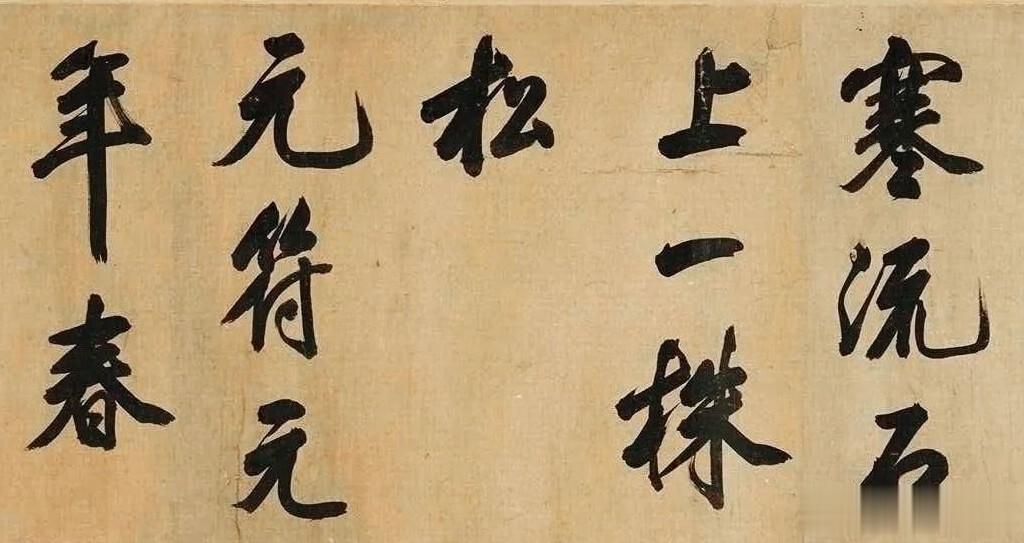 寒流石
上一株
松
元符元
年春